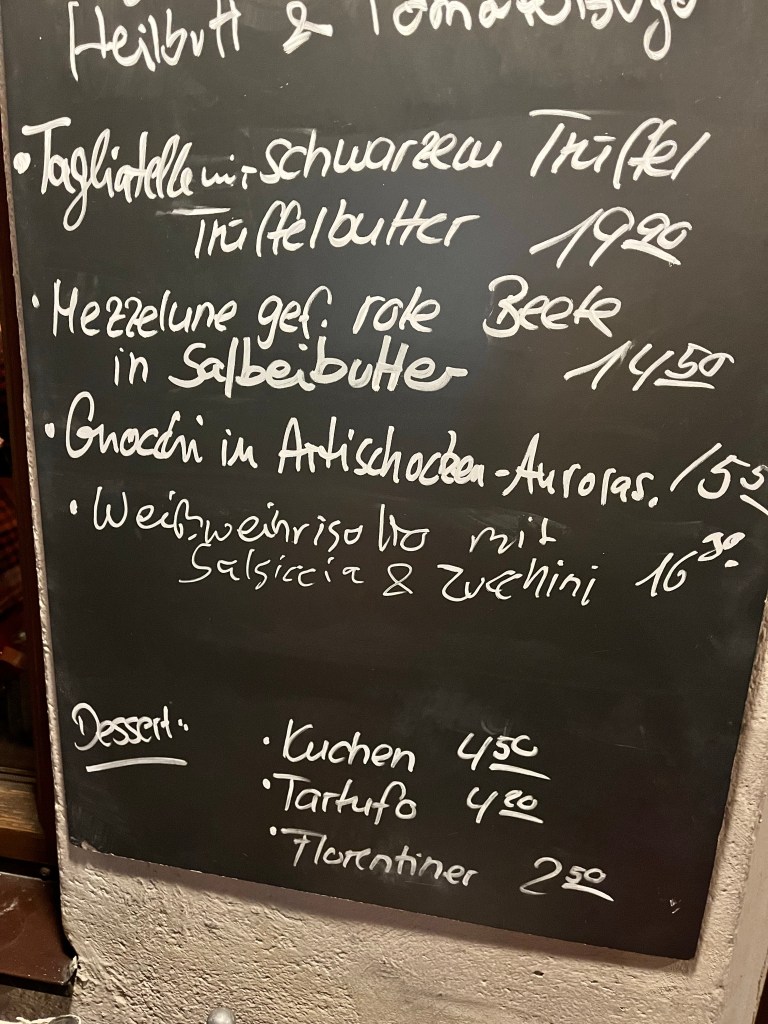 Heilbutt & Tomatensugo
• Tagliatelle mit schwarzem Trüffel
Trüffelbutter 19 90
• Mezzelune gef. rote Beete
in Salbeibutter 14 50
• Gnocchi in Artischocken-Auroras. 15 5
• Weißweinrisotto mit
Salsiccia & Zucchini 16
Dessert:
• Kuchen 4 50
• Tartufo 4 20
• Florentiner 2 50